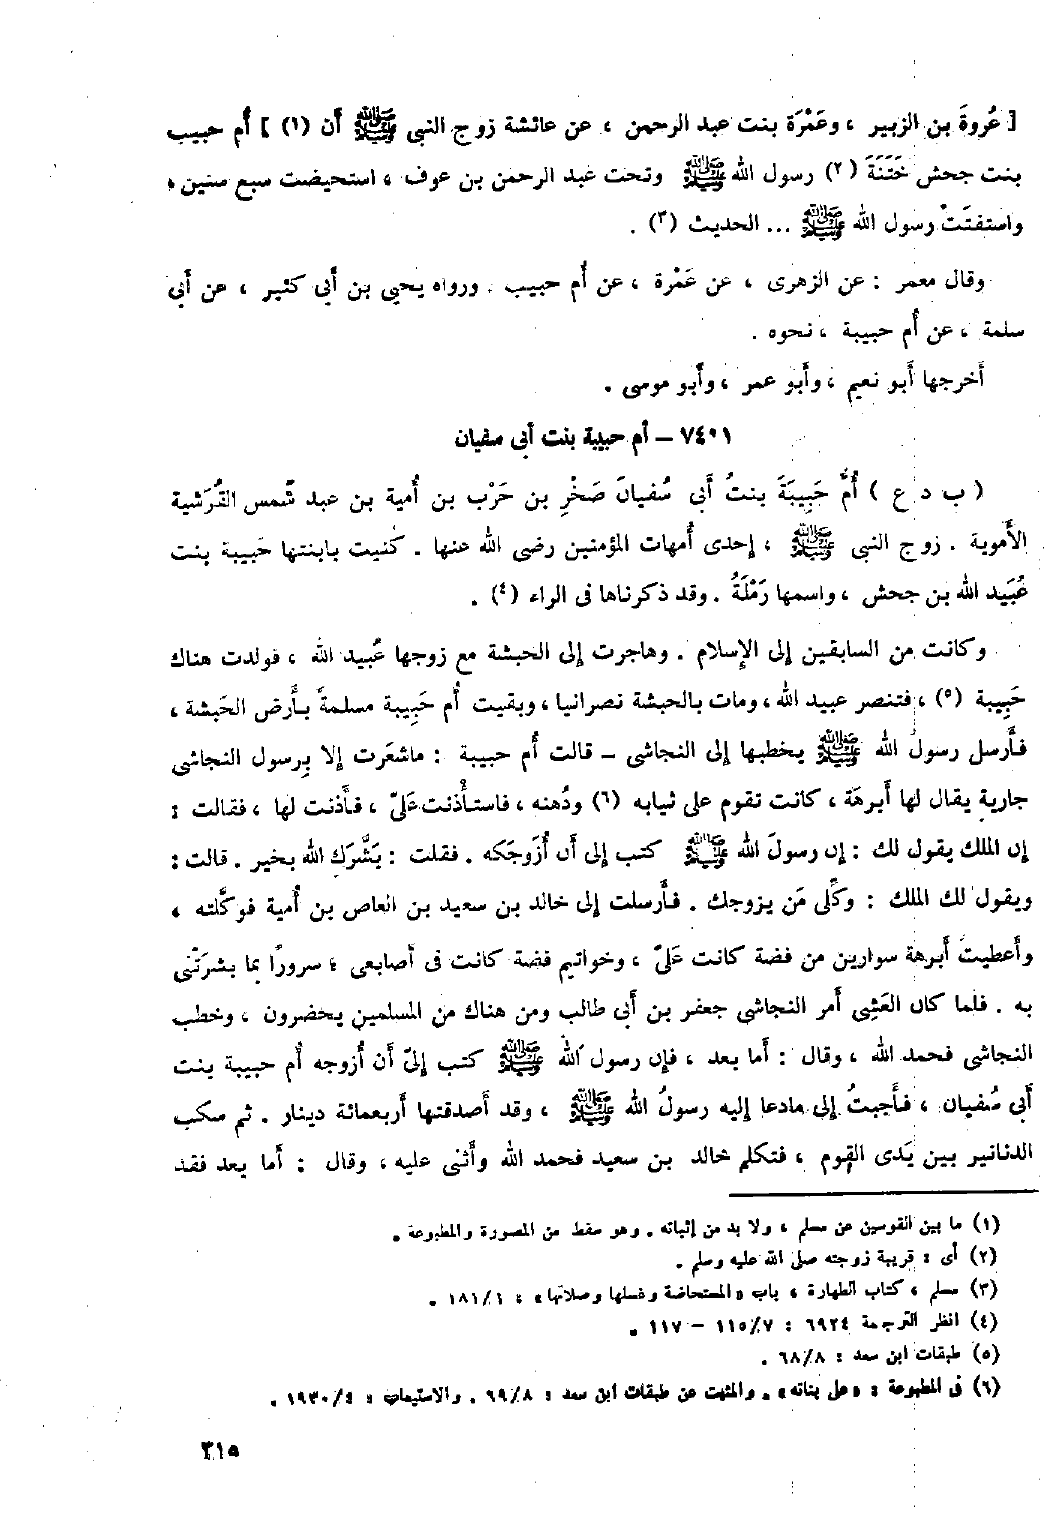 [ عُروةَ بن الزبير ، وعَمْرَة بنت عبد الرحمن ، عن عائشة زوج النبى ﷺ أن (١) ] أم حبيب
بنت جحش خَتَنَةَ (٢) رسول الله ﷺ وتحت عبد الرحمن بن عوف ، استحيضت سبع سنين ،
واستفتَتْ رسول الله ﷺ ... الحديث (٣) .
وقال معمر : عن الزهرى ، عن عَمْرة ، عن أم حبيب . ورواه يحيى بن أبى كثير ، عن أبى
سلمة ، عن أم حبيبة ، نحوه .
أخرجها أبو نعيم ، وأبو عمر ، وأبو موسى .
٧٤٠١ – أم حبيبة بنت أبى سفيان
( ب د ع ) أُمّ حَبِيبَةَ بنتُ أبى سُفيانَ صَخْرِ بن حَرْب بن أُمية بن عبد شَمس القُرَشية
الأُموية . زوج النبى ﷺ ، إحدى أُمهات المؤمنين رضى الله عنها . كُنيت بابنتها حَبيبة بنت
عُبَيد الله بن جحش ، واسمها رَمْلَةُ . وقد ذكرناها فى الراء (٤) .
وكانت من السابقين إلى الإسلام . وهاجرت إلى الحبشة مع زوجها عُبيد الله ، فولدت هناك
حَبِيبة (٥) ، فتنصر عبيد الله ، ومات بالحبشة نصرانيا ، وبقيت أُم حَبِيبة مسلمةً بأَرض الحَبشة ،
فأَرسل رسولُ الله ﷺ يخطبها إلى النجاشى – قالت أُم حبيبة : ماشعَرت إلا بِرسول النجاشى
جارية يقال لها أَبرهَة ، كانت تقوم على ثيابه (٦) ودُهنه ، فاستأْذنت عَلَىّ ، فأَذنت لها ، فقالت :
إن الملك يقول لك : إن رسولَ الله ﷺ كتب إلى أن أُزَوجَكه . فقلت : بَشَّرَكِ الله بخير . قالت :
ويقول لك الملك : وَكِّلى مَن يزوجك . فأَرسلت إلى خالد بن سعيد بن العاص بن أُمية فوكَّلته ،
وأَعطيتُ أَبرهة سوارين من فضة كانت عَلَىّ ، وخواتيم فضة كانت فى أصابعى ، سرورًا بما بشرَتْنى
به . فلما كان العَشِى أَمر النجاشى جعفر بن أَبى طالب ومن هناك من المسلمين يحضرون ، وخطب
النجاشى فحمد الله ، وقال : أَما بعد ، فإن رسول الله ﷺ كتب إلىّ أَن أُزوجه أُم حبيبة بنت
أَبى سُفيان ، فأَجبتُ إلى مادعا إليه رسولُ الله ﷺ ، وقد أَصدقتها أربعمائة دينار . ثم سكب
الدنانير بين يَدَى القوم ، فتكلم خالد بن سعيد فحمد الله وأَثنى عليه ، وقال : أَما بعد فقد
(١) ما بين القوسين عن مسلم ، ولا بد من إثباته . وهو سقط من المصورة والمطبوعة .
(٢) أى : قريبة زوجته صلى الله عليه وسلم .
(٣) مسلم ، كتاب الطهارة ، باب «المستحاضة وغسلها وصلاتها» : ١٨١/١ .
(٤) انظر الترجمة ٦٩٢٤ : ١١٥/٧ – ١١٧ .
(٥) طبقات ابن سعد : ٦٨/٨ .
(٦) فى المطبوعة : «على بناته» . والمثبت عن طبقات ابن سعد : ٦٩/٨ . والاستيعاب : ١٩٣٠/٤ .
٣١٥